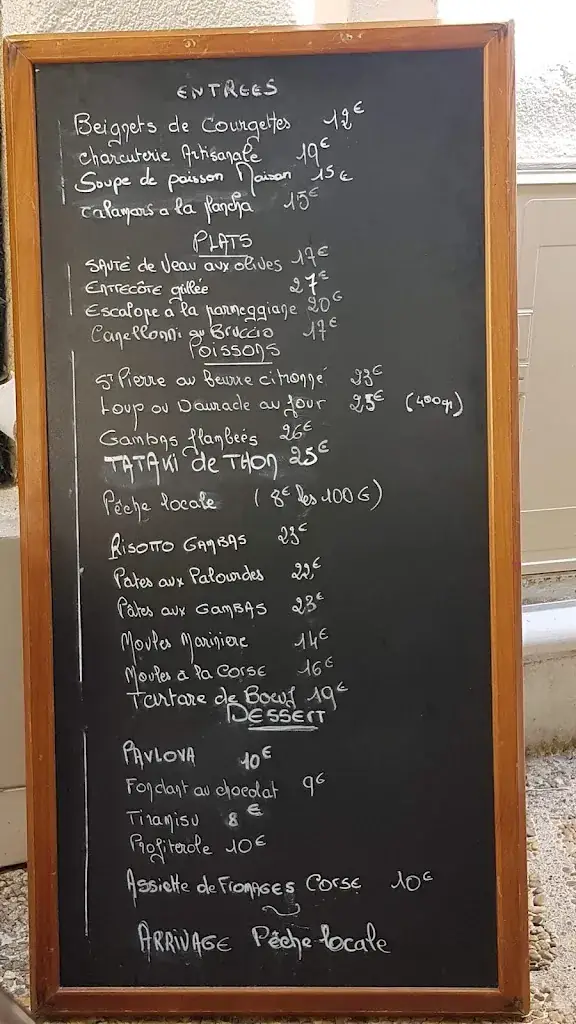 ENTREES
Beignets de Courgettes 12€
charcuterie Artisanale 19€
Soupe de poisson Maison 15€
calamars a la plancha 15€
PLATS
SAUTÉ de Veau aux olives 17€
ENTRECÔTE grillée 27€
Escalope à la parmeggiane 20€
Canellonni au Bruccio 17€
POISSONS
ST Pierre au Beurre citronné 23€
Loup ou Daurade au four 25€ (400gr)
Gambas flambées 26€
TATAKI de THON 25€
Pêche locale (8€ les 100G)
RISOTTO GAMBAS 23€
Pates aux Palourdes 22€
Pâtes aux GAMBAS 23€
Moules Mariniere 14€
Moules a la Corse 16€
Tartare de Boeuf 19€
DESSERT
PAVLOVA 10€
Fondant au chocolat 9€
Tiramisu 8€
Profiterole 10€
Assiette de Fromages Corse 10€
ARRIVAGE Pêche locale